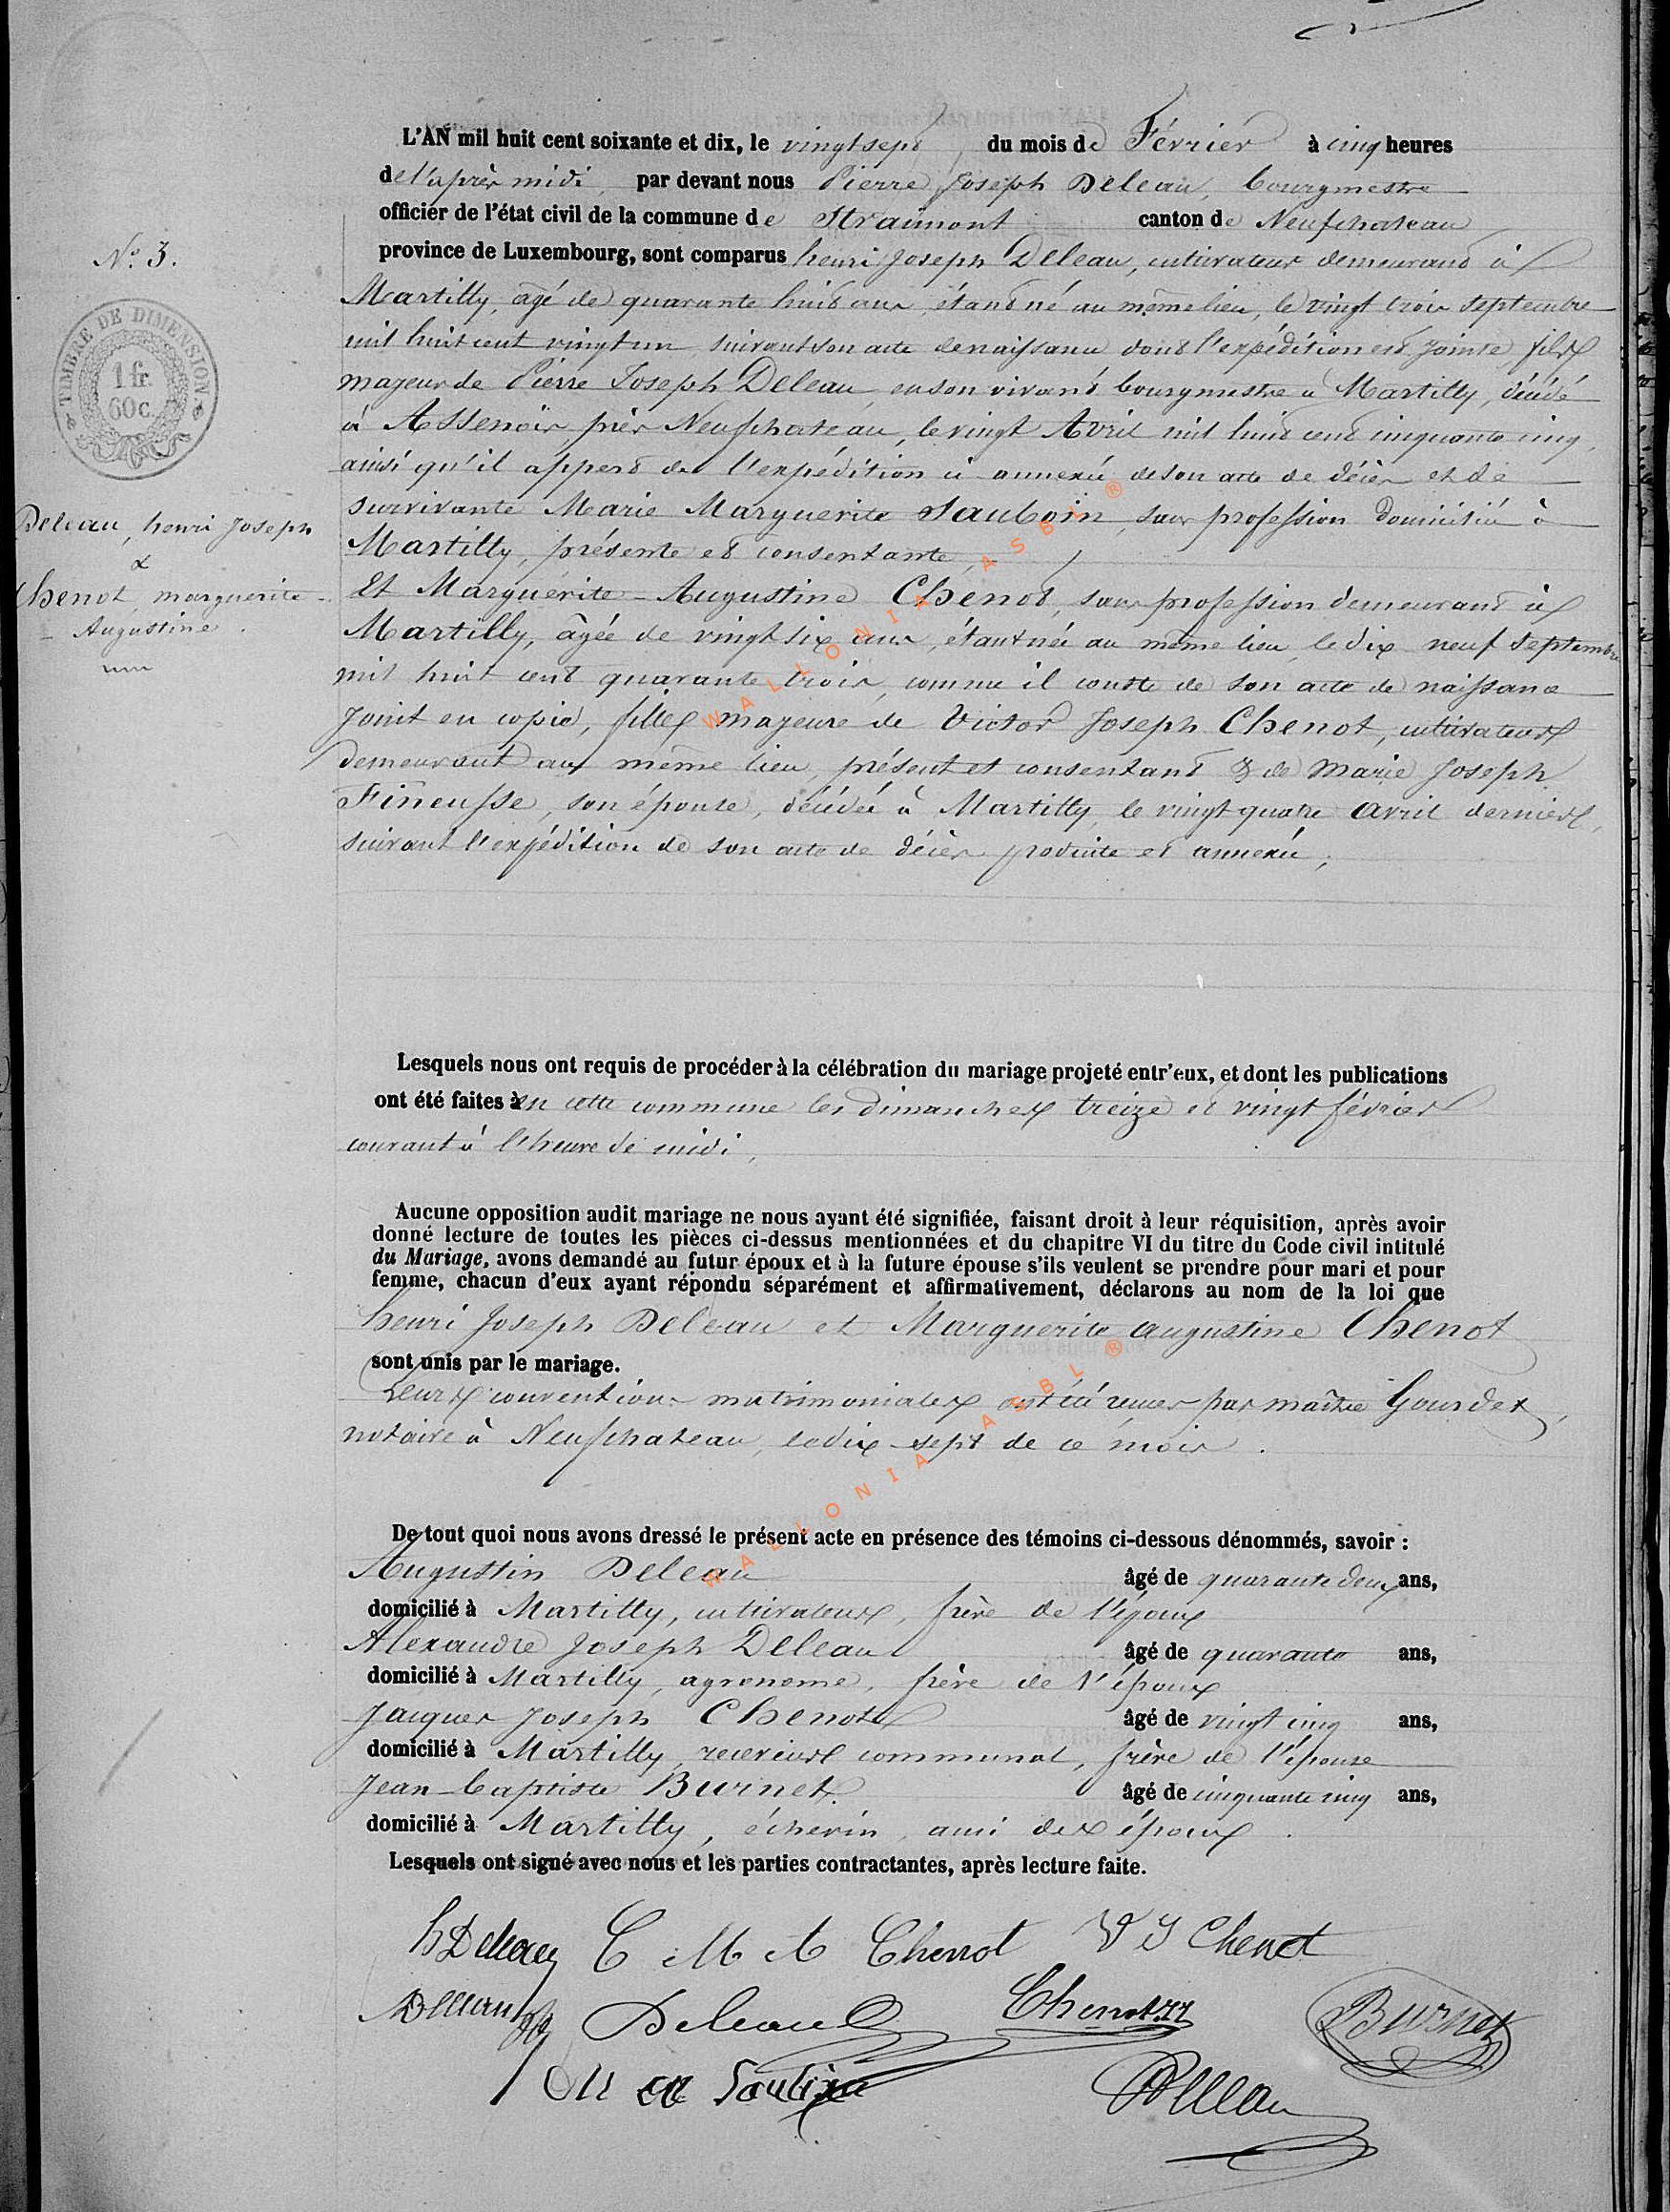 L'AN mil huit cent soixante et dix, le vingt sept du mois de Février à cinq heures
de l'après midi, par devant nous Pierre Joseph Deleau, bourgmestre
officier de l'état civil de la commune de Straimont canton de Neufchateau
province de Luxembourg, sont comparus henri Joseph Deleau, cultivateur demeurant à
Martilly, âgé de quarante huit ans, étant né au même lieu, le vingt trois septembre
mil huit cent vingt un, suivant son acte de naissance dont l'expédition est jointe, fils
majeur de Pierre Joseph Deleau, en son vivant bourgmestre à Martilly, décédé
à Assenois, près Neufchateau, le vingt Avril mil huit cent cinquante cinq,
ainsi qu'il appert de l'expédition ci-annexée de son acte de décès et de
survivante Marie Marguerite Sauboin, sans profession domiciliée à
Martilly, présente et consentante,
Et Marguerite-Augustine Chenot, sans profession demeurant à
Martilly, âgée de vingt six ans, étant née au même lieu, le dix neuf septembre
mil huit cent quarante trois, comme il conste de son acte de naissance
joint en copie, fille majeure de Victor Joseph Chenot, cultivateur
demeurant au même lieu, présent et consentant & de Marie Joseph
Fineusse, son épouse, décédée à Martilly, le vingt quatre avril dernier,
suivant l'expédition de son acte de décès produite et annexée,
N° 3.
TIMBRE DE DIMENSION
1 fr.
60 c.
Deleau, henri Joseph
&
Chenot, marguerite-
Augustine.
Lesquels nous ont requis de procéder à la célébration du mariage projeté entr'eux, et dont les publications
ont été faites à en cette commune les dimanches treize et vingt février
courant à l'heure de midi,
Aucune opposition audit mariage ne nous ayant été signifiée, faisant droit à leur réquisition, après avoir
donné lecture de toutes les pièces ci-dessus mentionnées et du chapitre VI du titre du Code civil intitulé
du Mariage, avons demandé au futur époux et à la future épouse s'ils veulent se prendre pour mari et pour
femme, chacun d'eux ayant répondu séparément et affirmativement, déclarons au nom de la loi que
henri Joseph Deleau et Marguerite augustine Chenot
sont unis par le mariage.
Leurs conventions matrimoniales ont été reçues par maître Gourdet,
notaire à Neufchateau, le dix-sept de ce mois.
De tout quoi nous avons dressé le présent acte en présence des témoins ci-dessous dénommés, savoir :
Augustin Deleau âgé de quarante deux ans,
domicilié à Martilly, cultivateur, frère de l'époux
Alexandre Joseph Deleau âgé de quarante ans,
domicilié à Martilly, agronome, frère de l'époux
Jacques Joseph Chenot âgé de vingt cinq ans,
domicilié à Martilly, receveur communal, frère de l'épouse
Jean-baptiste Burnet âgé de cinquante cinq ans,
domicilié à Martilly, échevin, ami des époux.
Lesquels ont signé avec nous et les parties contractantes, après lecture faite.
h Deleau C M A Chenot V J Chenot
Deleau Deleau Chenot Burnet
Deleau
WALLONIA ASBL ®
WALLONIA ASBL ®